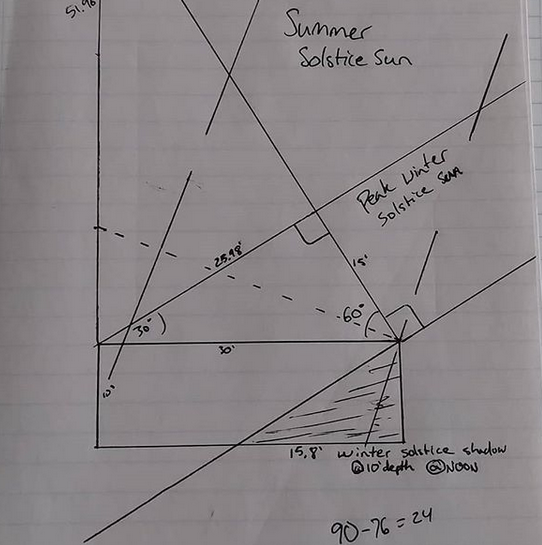 51.96
Summer
Solstice Sun
Peak Winter
Solstice Sun
25.98'
15'
30°
60°
30'
10'
15.8' winter solstice shadow
@ 10' depth @ NOON
90-76=24